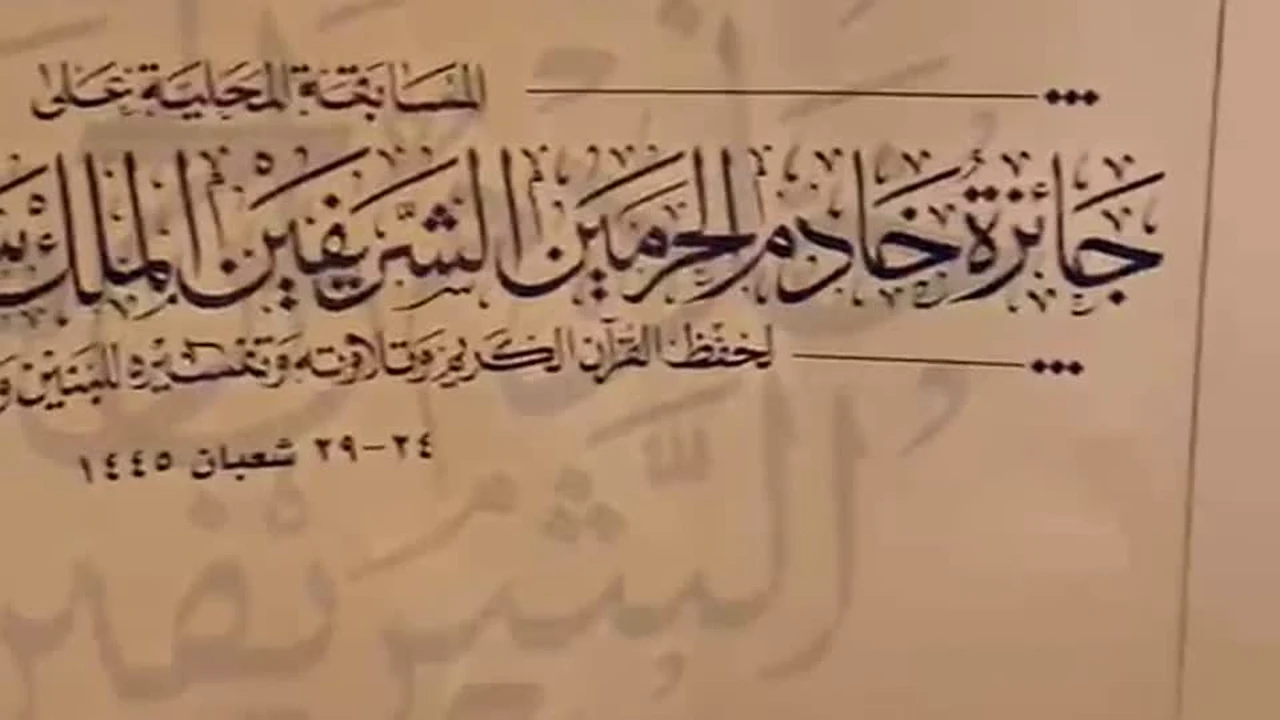 المسابقة المحلية على
جائزة خادم الحرمين الشريفين الملك
لحفظ القرآن الكريم وتلاوته وتفسيره للبنين
٢٤-٢٩ شعبان ١٤٤٥
الشريفين